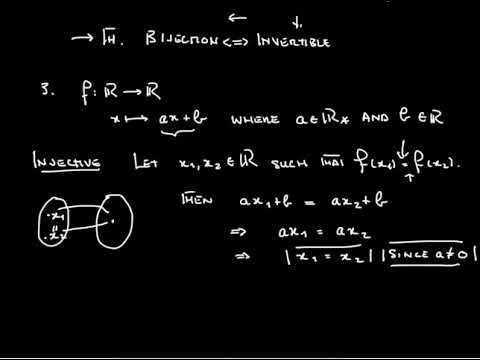 → TH. BIJECTION <=> INVERTIBLE
3. f: ℝ → ℝ
x ↦ ax+b WHERE a ∈ ℝ* AND b ∈ ℝ
INJECTIVE LET x₁, x₂ ∈ ℝ SUCH THAT f(x₁) = f(x₂).
THEN ax₁+b = ax₂+b
·x₁
=> ax₁ = ax₂
·x₂
=> | x₁ = x₂ | | SINCE a≠0 |